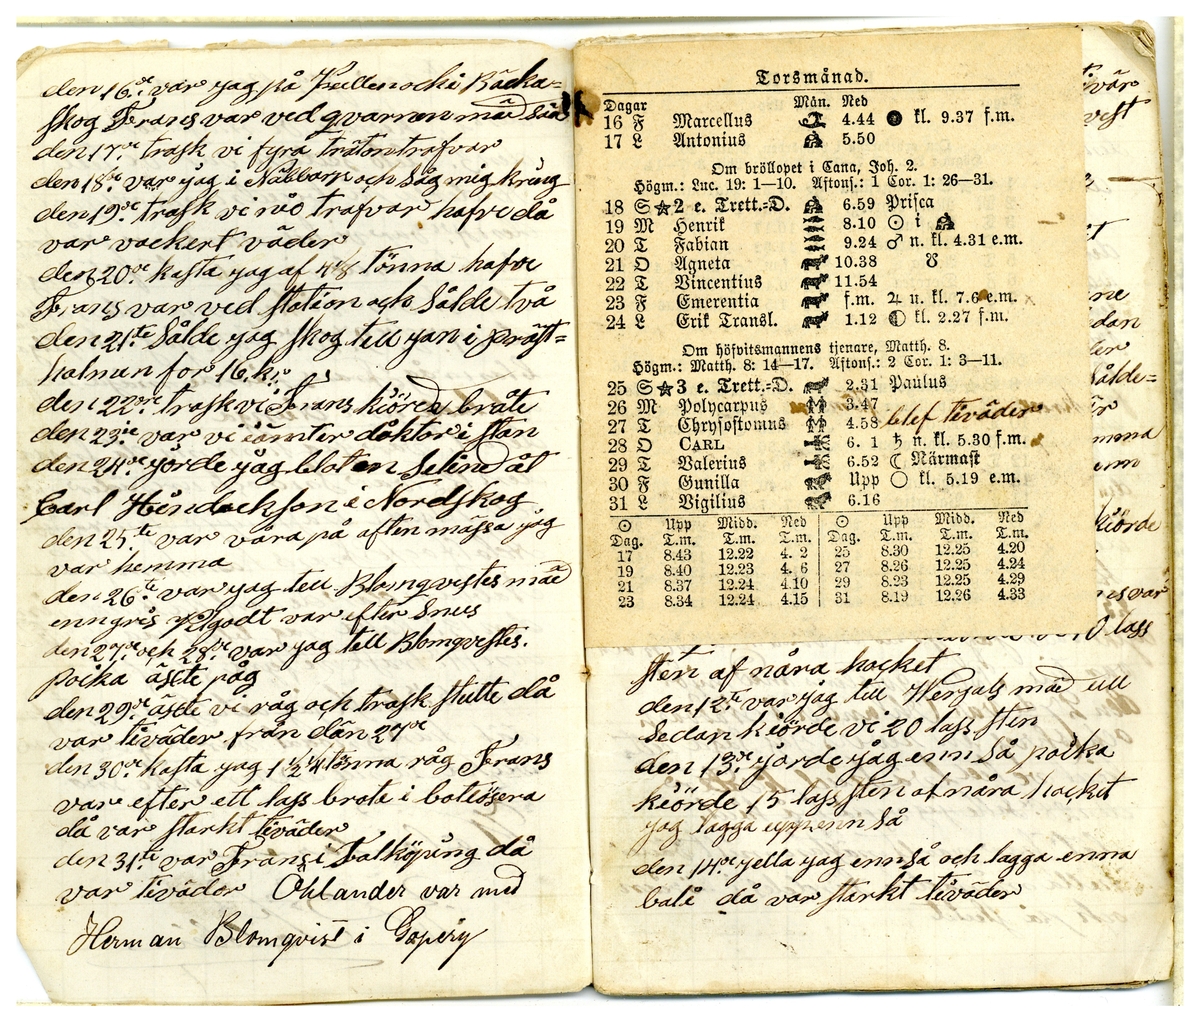 den 16de var jag på Kullen och i Bäcka=
skog Frans var ved qvarnen mäd säd
den 17de trask vi fyra träton trafvar
den 18de var jag i Nåbbarp och såg mig kring
den 19de trask vi nio trafvar hafre då
var vackert väder
den 20de kasta jag af 4 1/8 tönna hafre
Frans var ved station och sålde två
den 21te sålde jag skog tell jan i präst=
halmun for 16 kr
den 22dre trask vi Frans kiörde bråte
den 23ie var vi iämter doktor i stan
den 24de gorde jag bloten Selind åt
Carl Hindrickson i Nordskog
den 25te var våra på aften massa jag
var hemma
den 26te var jag tell Blomqvestes mäd
enn gris Algodt var efter Snus
den 27de och 28de var jag tell Blomqvestes.
poika äste råg
den 29de äste vi råg och trask slutte då
var tiväder från dän 27de
den 30de kasta jag 1 1/2 1/4 tönna råg Frans
vare efter ett lass brote i botiösera
då var starkt tiväder
den 31te var Frans i Falköping då
var tiväder Öhlander var med
Herman Blomqvist i Gopery
Torsmånad.
Dagar Mån. Ned
16 F Marcellus 4.44 ● kl. 9.37 f.m.
17 L Antonius 5.50
Om bröllopet i Cana, Joh. 2.
Högm.: Luc. 19: 1—10. Aftons.: 1 Cor. 1: 26—31.
18 S ★ 2 e. Trett.=D. 6.59 Prisca
19 M Henrik 8.10 ☉ i
20 T Fabian 9.24 ♂ n. kl. 4.31 e.m.
21 O Agneta 10.38 ☋
22 T Vincentius 11.54
23 F Emerentia f.m. ♃ u. kl. 7.6 e.m.
24 L Erik Transl. 1.12 ◐ kl. 2.27 f.m.
Om höfvitsmannens tjenare, Matth. 8.
Högm.: Matth. 8: 14—17. Aftons.: 2 Cor. 1: 3—11.
25 S ★ 3 e. Trett.=D. 2.31 Paulus
26 M Polycarpus 3.47
27 T Chrysostomus 4.58 blef tiväder
28 O CARL 6. 1 ♄ n. kl. 5.30 f.m.
29 T Valerius 6.52 ☾ Närmast
30 F Gunilla Upp ○ kl. 5.19 e.m.
31 L Vigilius 6.16
☉ Upp Midd. Ned ☉ Upp Midd. Ned
Dag. T.m. T.m. T.m. Dag. T.m. T.m. T.m.
17 8.43 12.22 4. 2 25 8.30 12.25 4.20
19 8.40 12.23 4. 6 27 8.26 12.25 4.24
21 8.37 12.24 4.10 29 8.23 12.25 4.29
23 8.34 12.24 4.15 31 8.19 12.26 4.33
10 lass
sten af nåra hocket
den 12te var jag tell Wersals mäd ull
Sedan kiörde vi 20 lass sten
den 13de gorde jag enn så poika
kiörde 15 lass sten af nåra hocket
jag lagga upp enn så
den 14de gella jag enn så och lagga enna
balé då var starkt tiväder